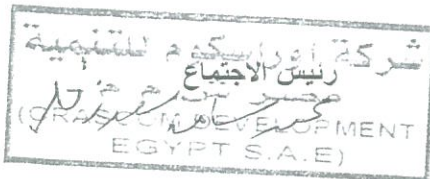 شركة اوراسكوم للتنمية
رئيس الاجتماع
مصر ش م م
(ORASCOM DEVELOPMENT
EGYPT S.A.E)